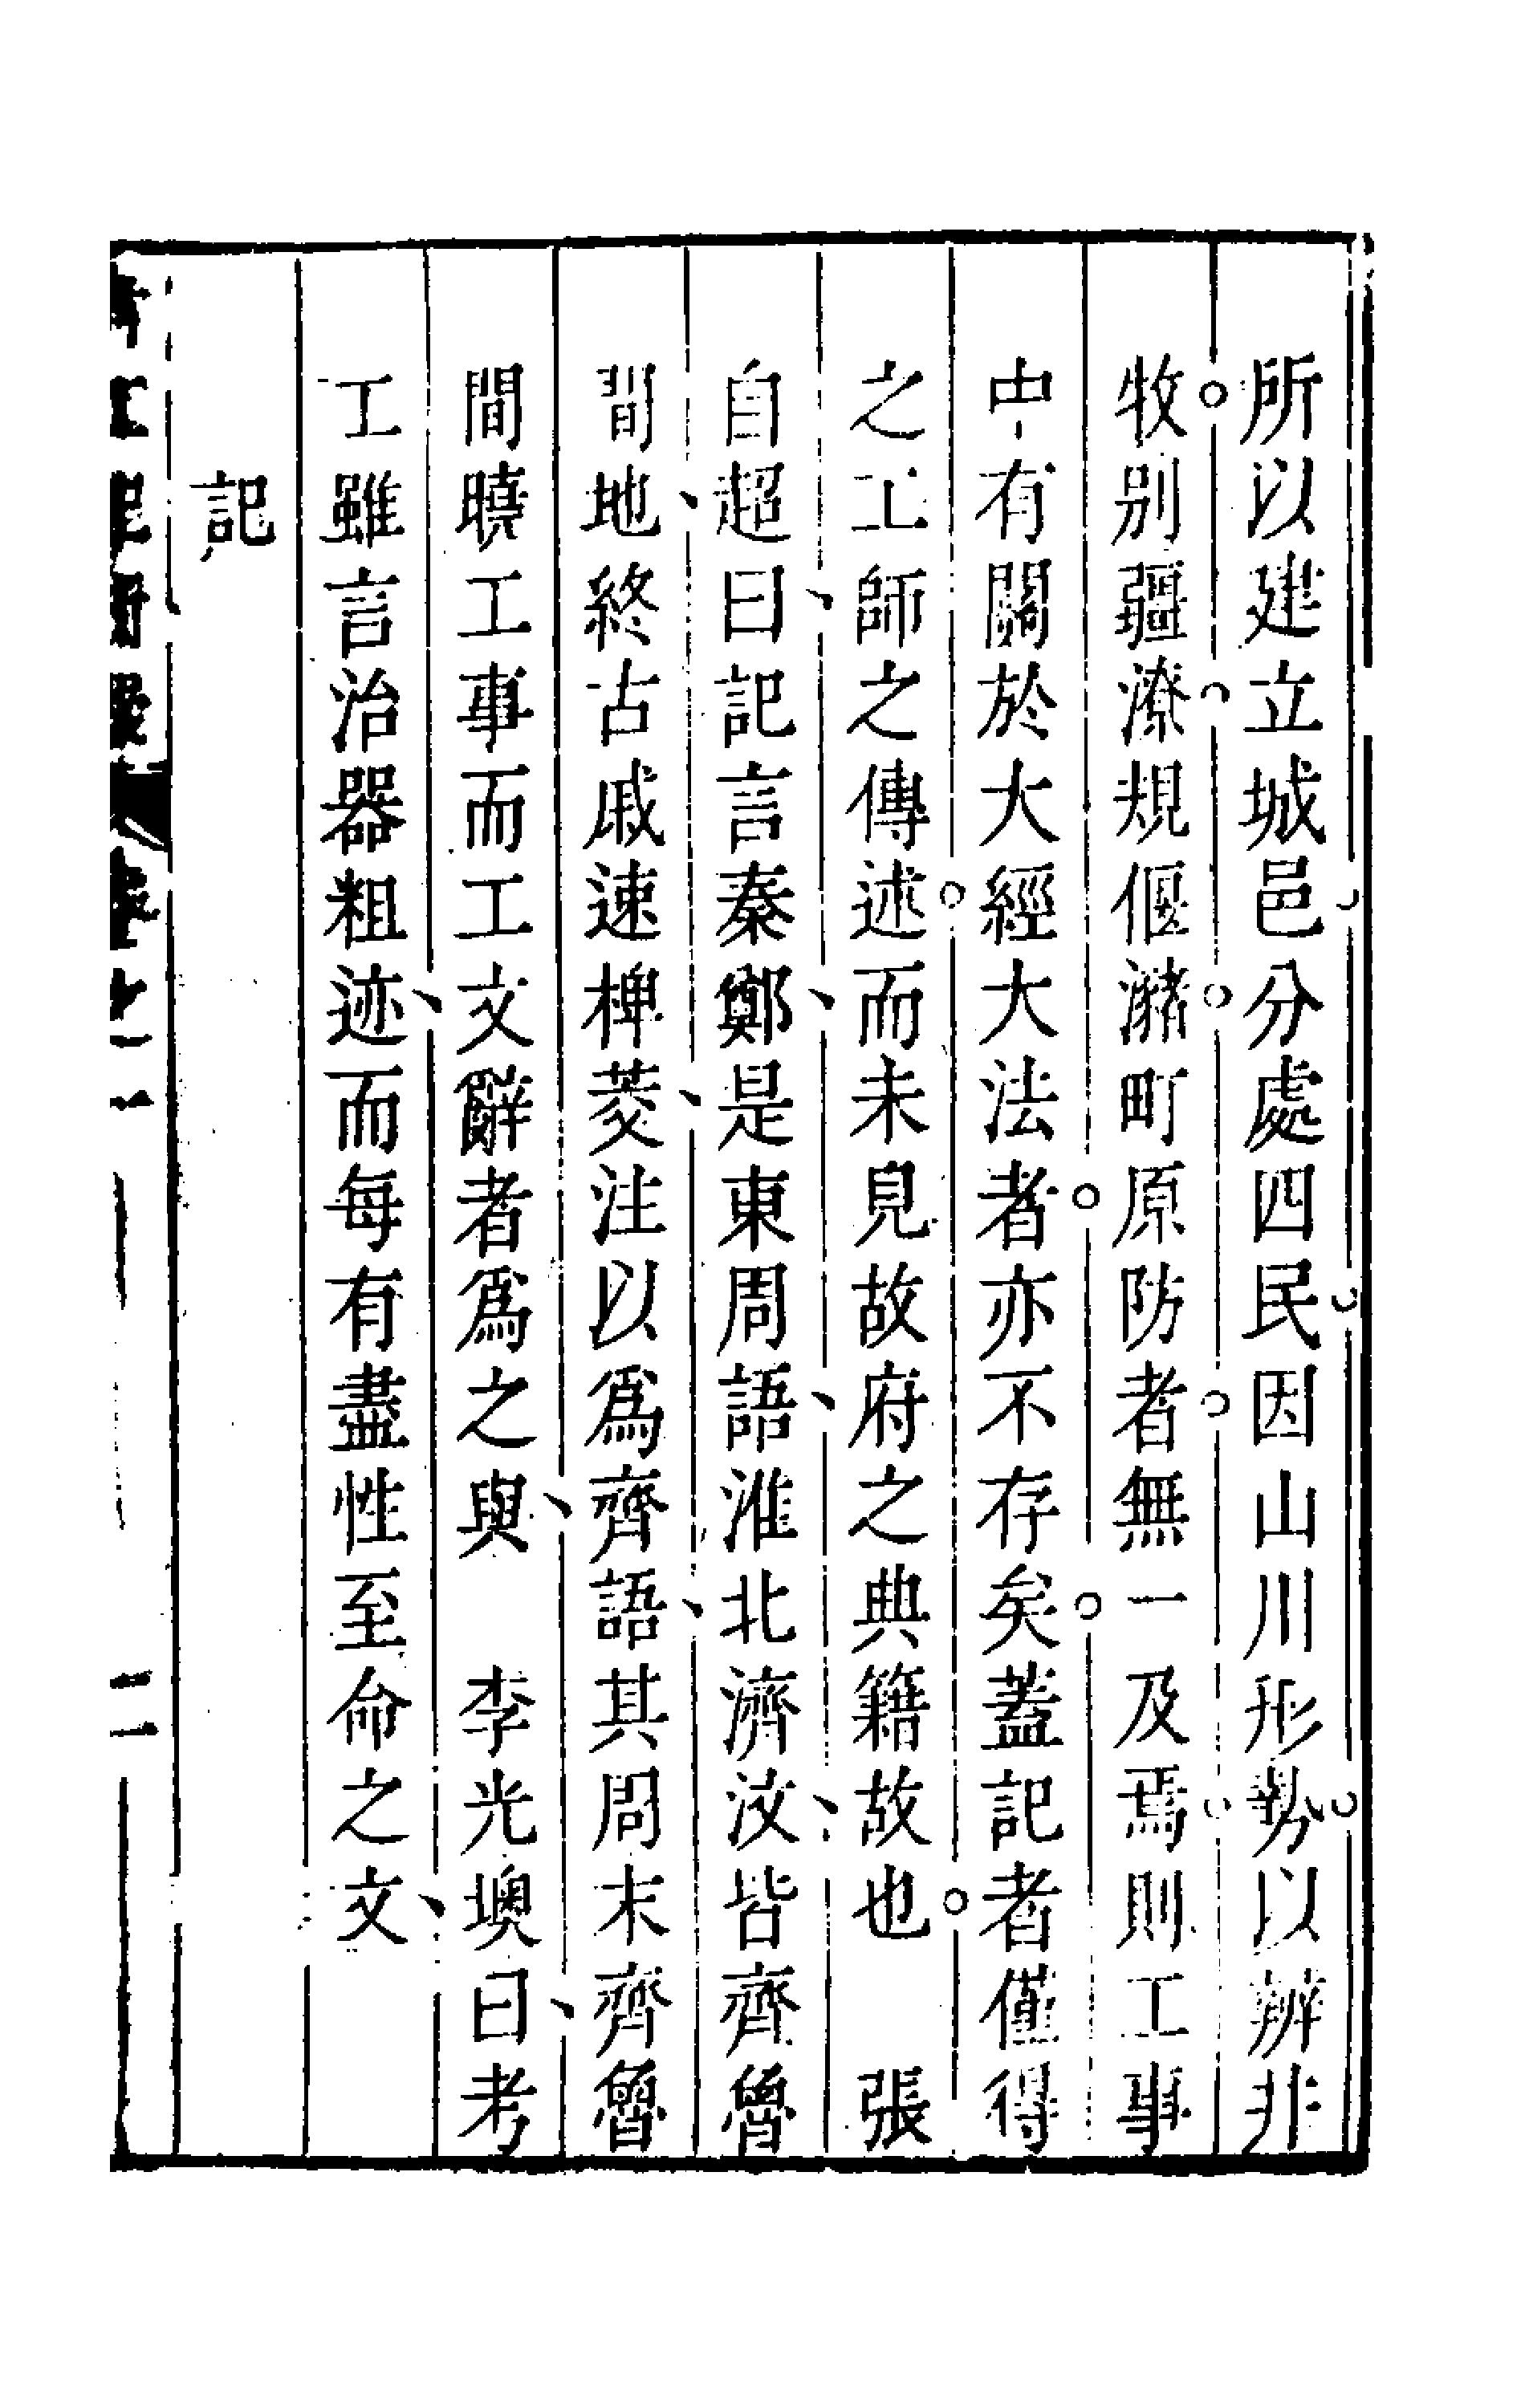 所以建立城邑分處四民因山川形勢以辨井
牧别疆潦規偃瀦町原防者無一及焉則工事
中有關於大經大法者亦不存矣蓋記者僅得
之工師之傳述而未見故府之典籍故也　張
自超曰記言秦鄭是東周語淮北濟汶皆齊魯
間地終古戚速椑茭注以爲齊語其周末齊魯
間曉工事而工文辭者爲之與　李光墺曰考
工雖言治器粗迹而每有盡性至命之文
記
考工記析疑卷之一　二